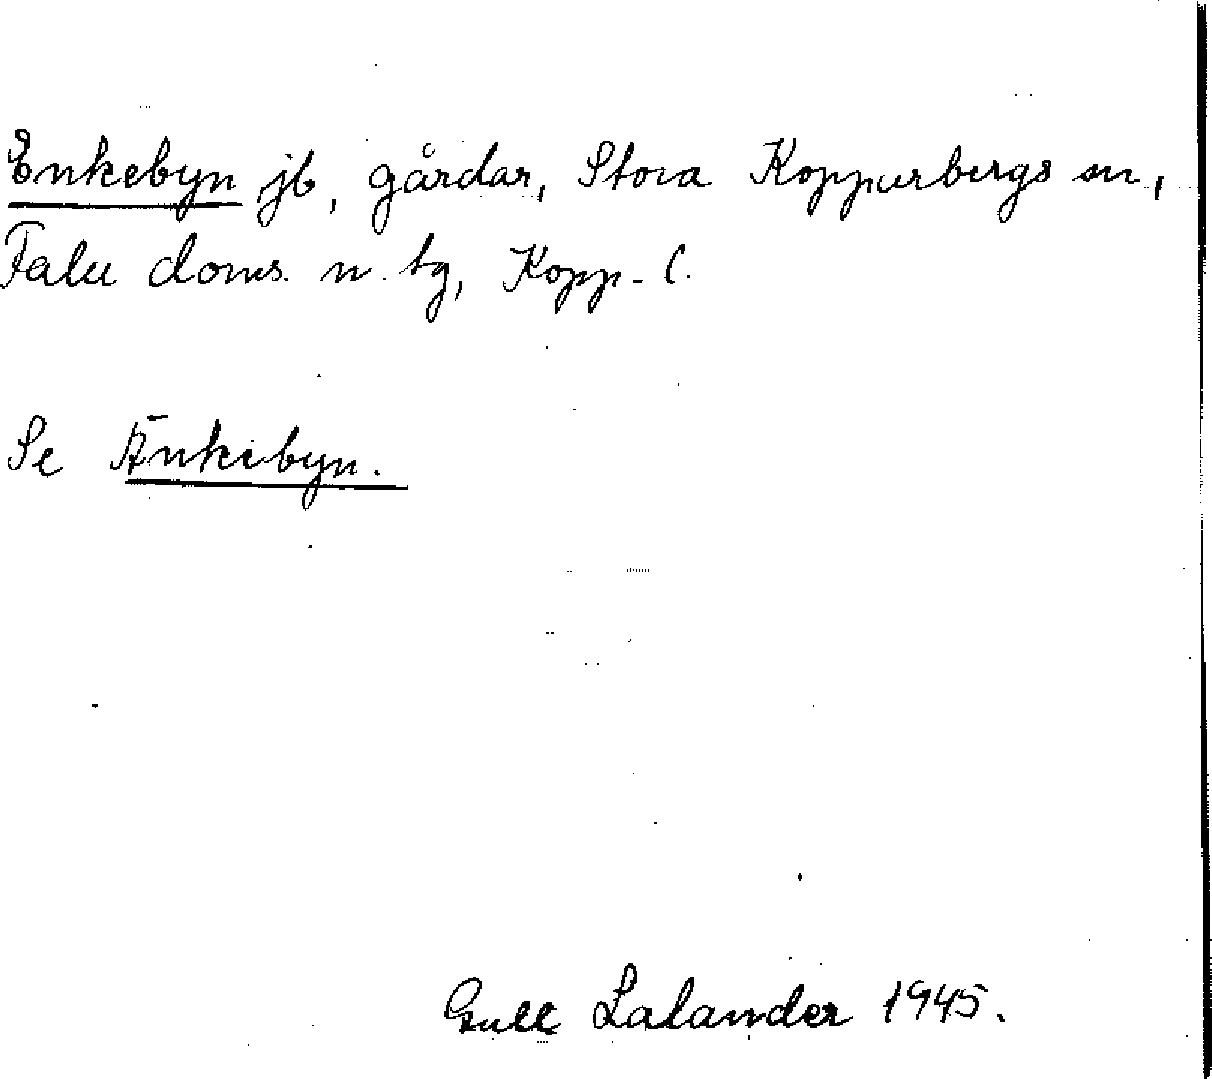 Enkebyn jb, gårdar, Stora Kopparbergs sn,
Falu doms. n. tg, Kopp. l.
Se Änkebyn.
Gull Lalander 1945.